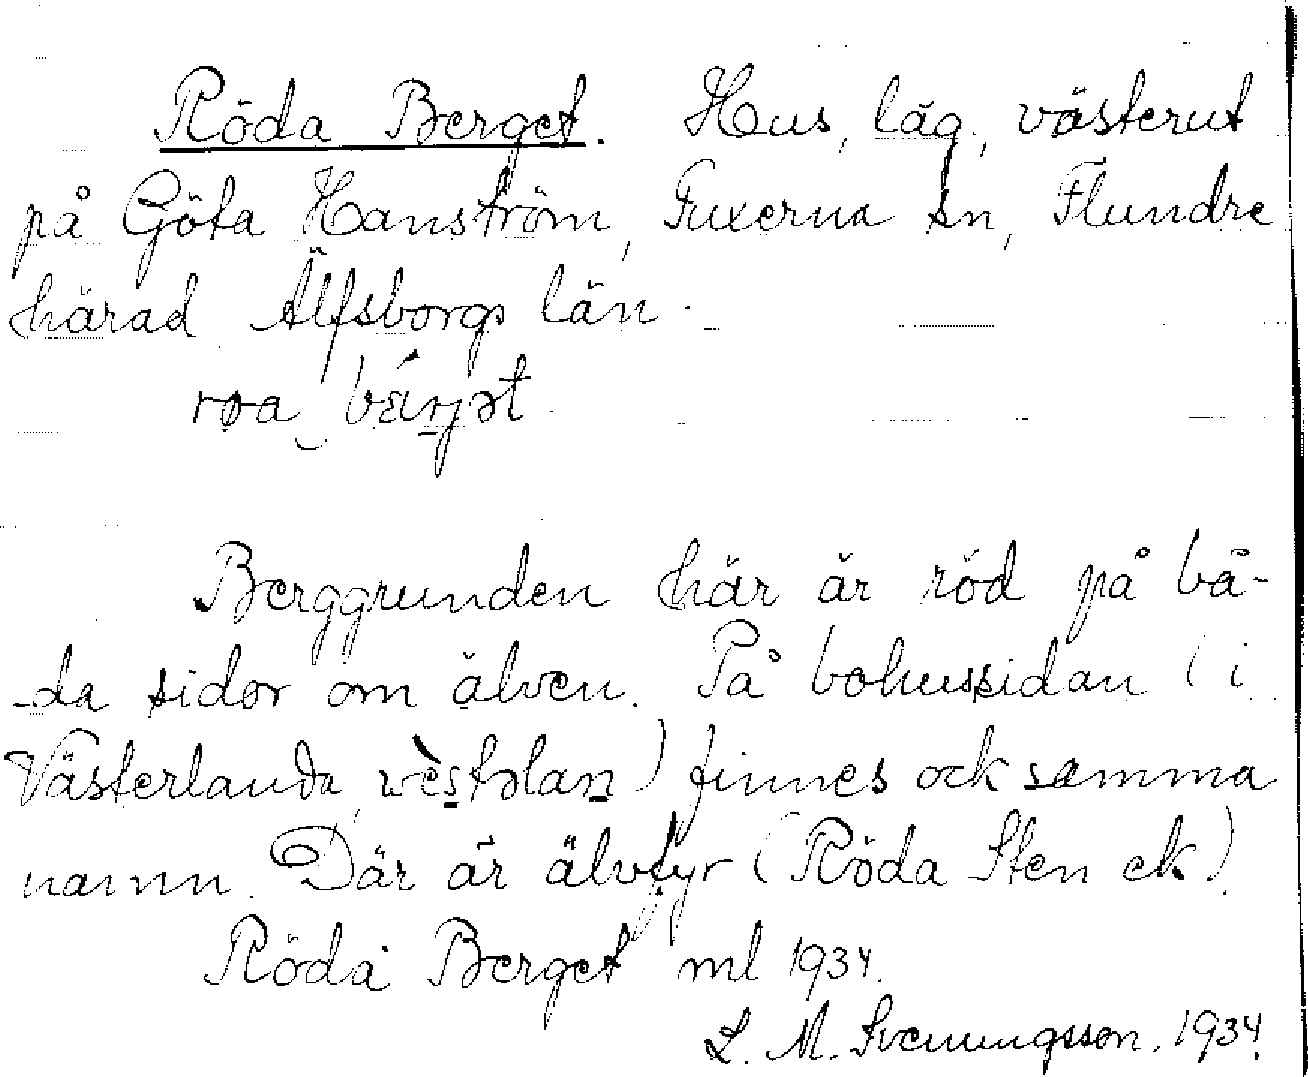 Röda Berget. Hus, läg., västerut
på Göta Hanström, Fuxerna sn, Flundre
härad Älfsborgs län.
Berggrunden här är röd på bå-
da sidor om älven. På bohussidan (i
Västerlanda) finnes ock samma
namn. Där är älvfyr (Röda Sten ek).
Röda Berget ml 1934.
L. M. Svenungsson. 1934.